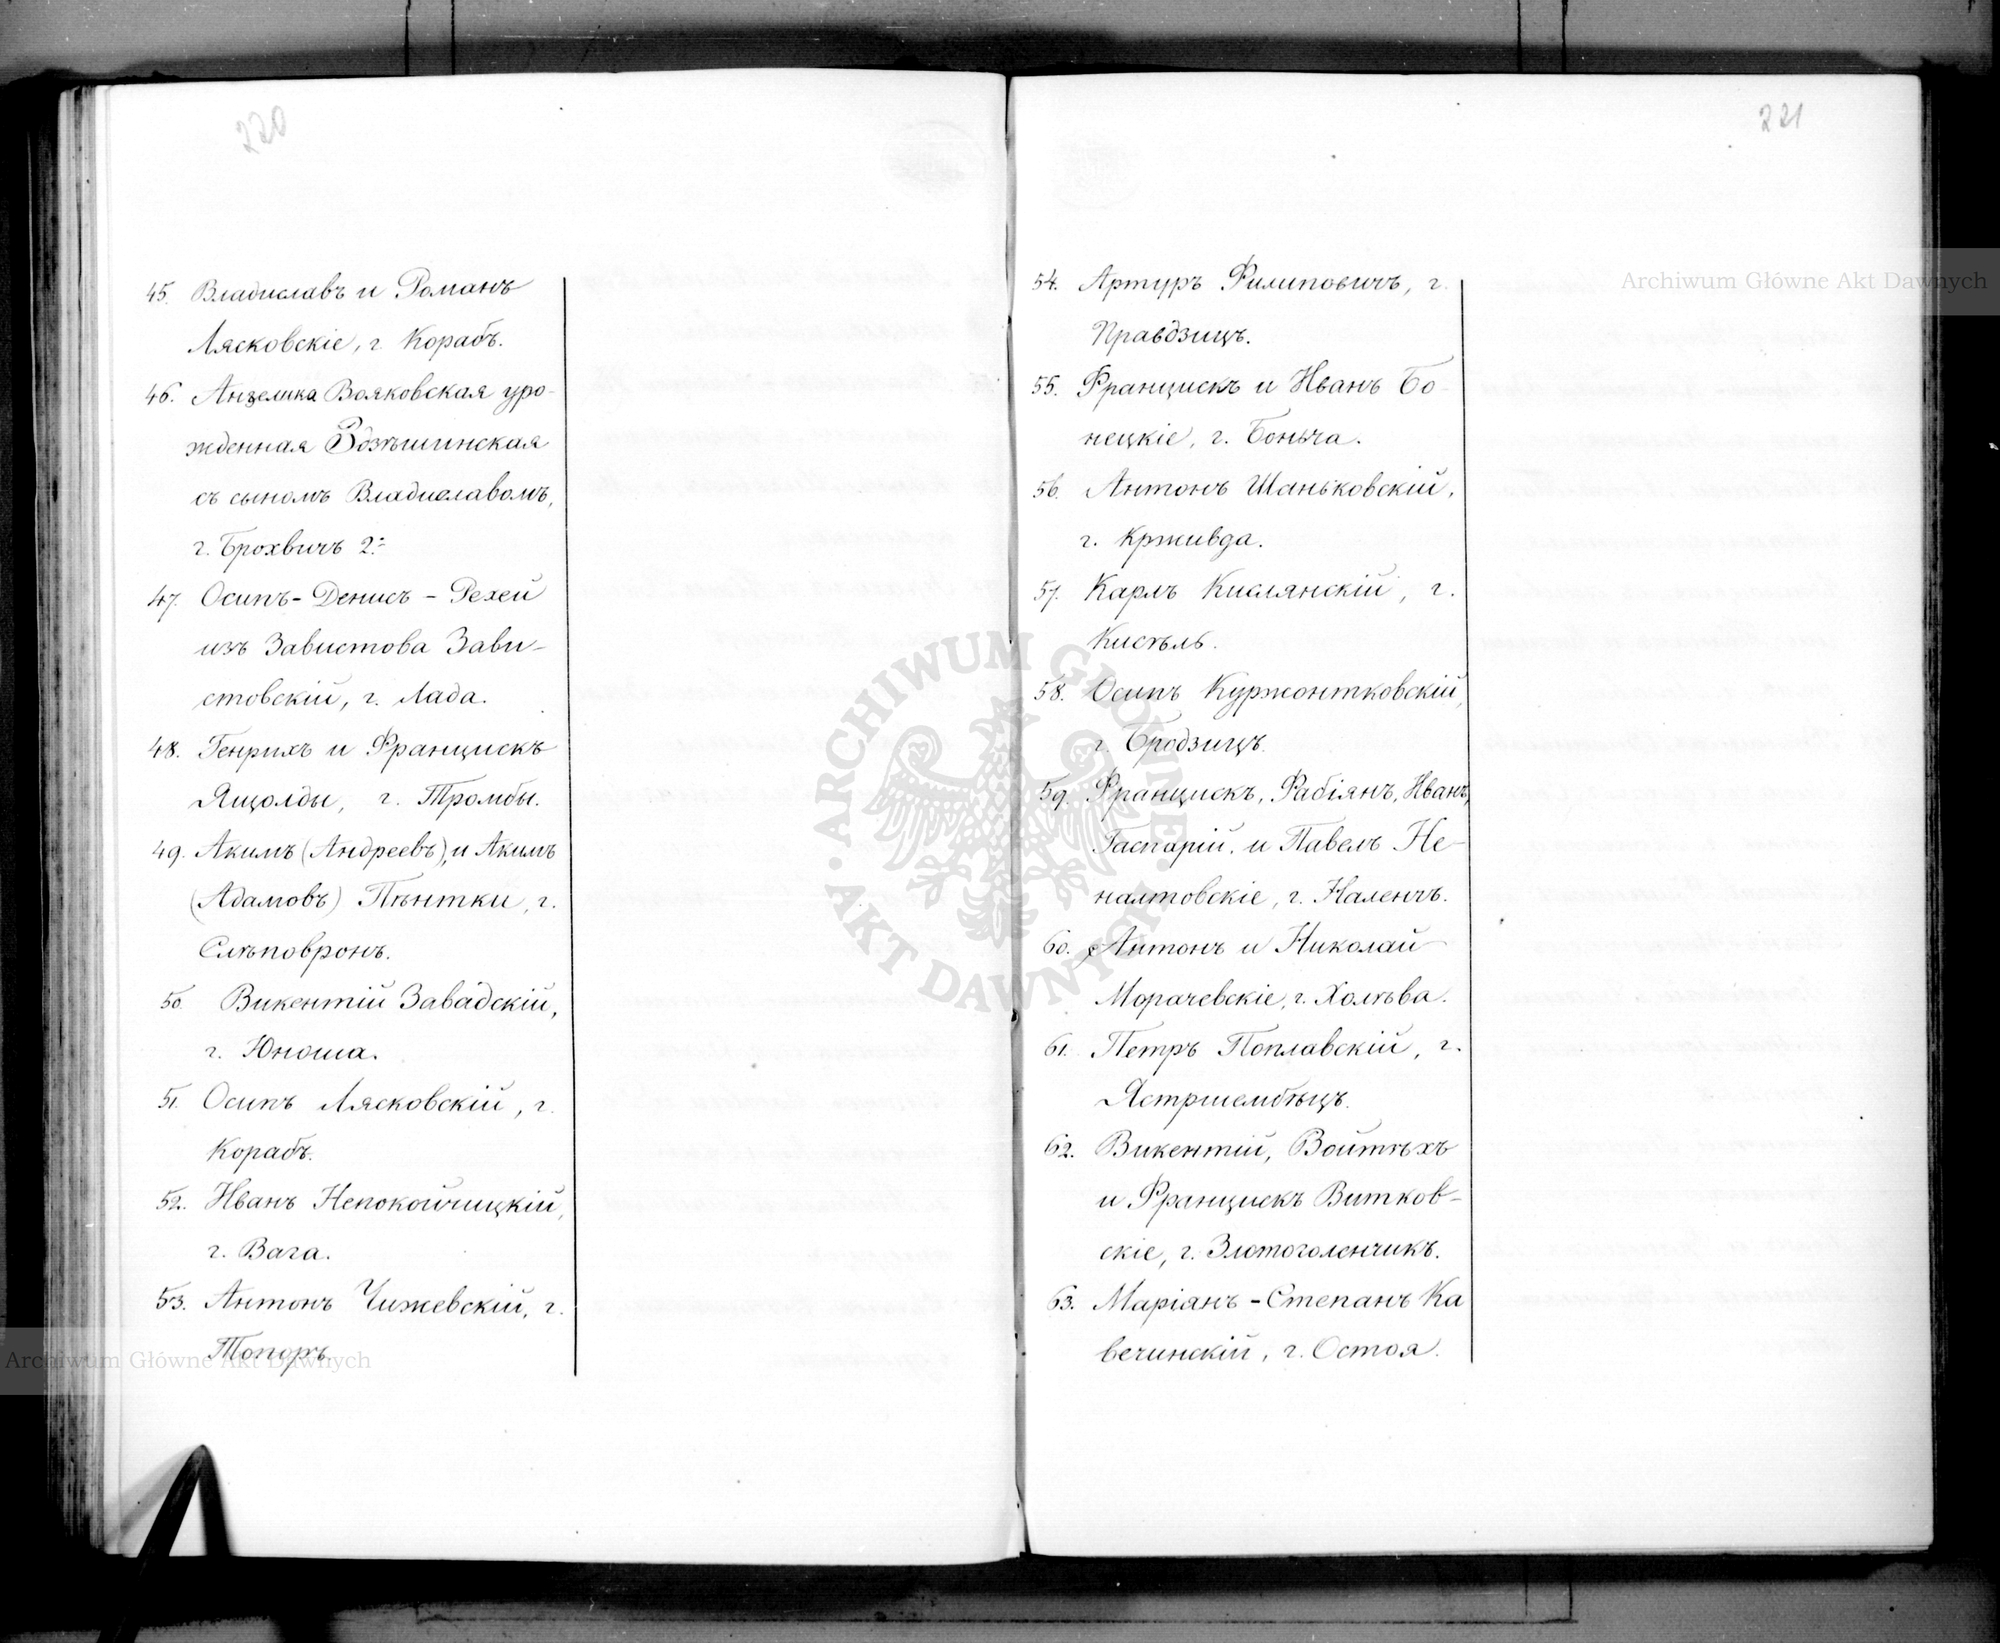 220
45. Владиславъ и Романъ
Лясковскіе, г. Корабъ.
46. Анзелика Вояковская уро-
жденная Здзѣшинская
съ сыномъ Владиславомъ,
г. Брохвичъ 2.-
47. Осипъ-Денисъ-Рехеи
изъ Завистова Зави-
стовскій, г. Лада.
48. Генрихъ и Францискъ
Ящолды, г. Тромбы.
49. Акимъ (Андреевъ), и Акимъ
(Адамовъ) Пѣнтки, г.
Слѣповронъ.
50 Викентій Завадскій,
г. Юноша.
51. Осипъ Лясковскій, г.
Корабъ.
52. Иванъ Непокойчицкій,
г. Вага.
53. Антонъ Чижевскій, г.
Топоръ
221
54. Артуръ Филиповичъ, г.
Правдзицъ.
55. Францискъ и Иванъ Бо-
нецкіе, г. Боньча.
56. Антонъ Шаньковскій,
г. Крживда.
57. Карлъ Кислянскій, г.
Кисѣль.
58. Осипъ Куржонтковскій,
г. Бродзицъ.
59. Францискъ, Фабіянъ, Иванъ,
Гаспарій, и Павелъ Не-
налтовскіе, г. Наленчъ.
60. Антонъ и Николай
Морачевскіе, г. Холѣва.
61. Петръ Поплавскій, г.
Ястршембѣцъ.
62. Викентій, Войтѣхъ
и Францискъ Витков-
скіе, г. Злотоголенчикъ.
63. Маріянъ-Степанъ Ка
вечинскій, г. Остоя.
Archiwum Główne Akt Dawnych
Archiwum Główne Akt Dawnych
ARCHIWUM GŁÓWNE · AKT DAWNYCH ·